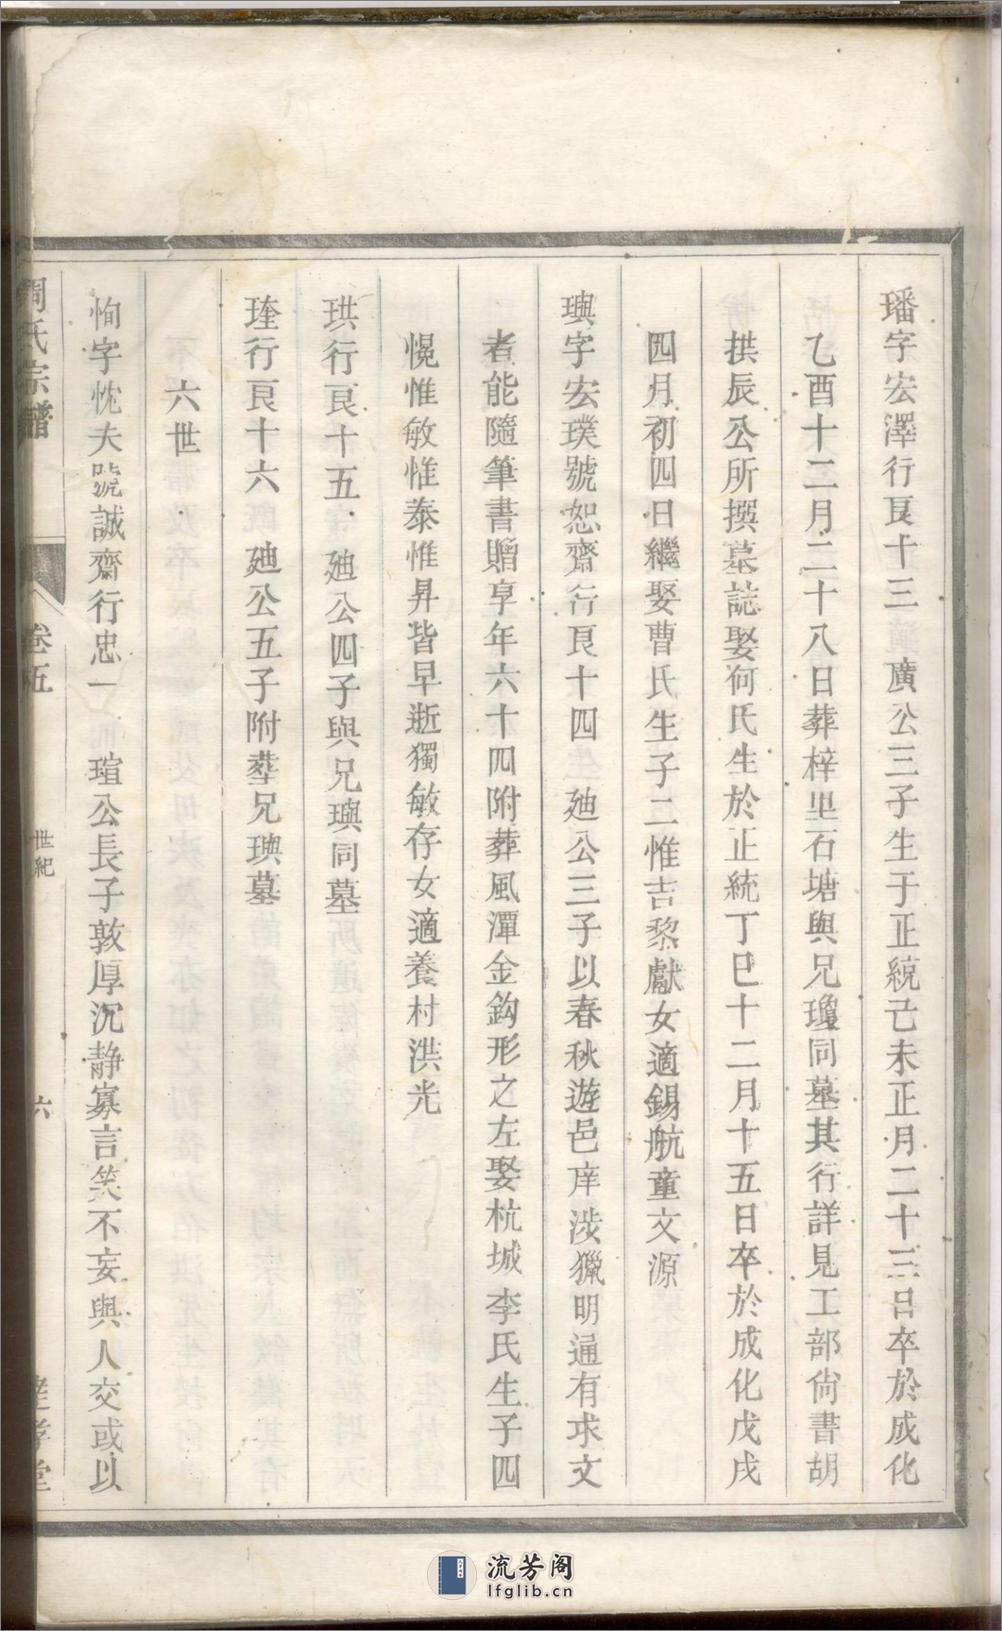 璠字宏澤行良十三　廣公三子生于正統己未正月二十三日卒於成化
乙酉十二月二十八日葬梓里石塘與兄瓊同墓其行詳見工部尙書胡
拱辰公所撰墓誌娶何氏生於正統丁巳十二月十五日卒於成化戊戌
四月初四日繼娶曹氏生子二惟吉黎獻女適錫航童文源
璵字宏璞號恕齋行良十四　廸公三子以春秋遊邑庠涉獵明通有求文
者能隨筆書贈享年六十四附葬風潭金鈎形之左娶杭城李氏生子四
㤺惟敏惟泰惟昇皆早逝獨敏存女適養村洪光
珙行良十五　廸公四子與兄璵同墓
琟行良十六　廸公五子附葬兄璵墓
六世
恂字忱夫號誠齋行忠一　瑄公長子敦厚沉静寡言笑不妄與人交或以
周氏宗譜　卷五　世紀　六　堂
流芳阁
lfglib.cn